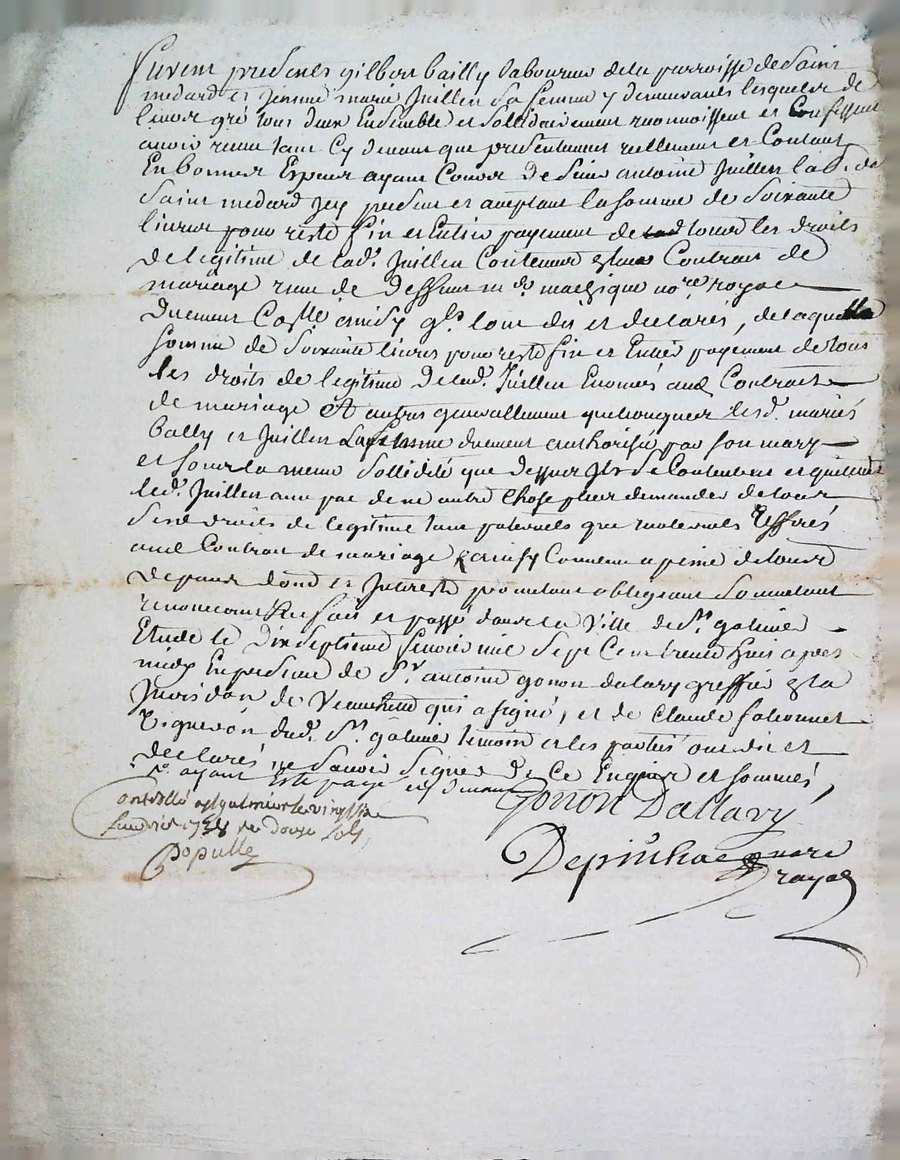 furent presents gilbert bailly laboureur de la parroisse de Saint
medard et Jenne marie Juillien Sa femme y demeurants lesquels de
leur gré tous deux Ensemble et sollidairement reconnoissent et Confessent
avoir receu tant Cy devant que presentement reellement et Contant
En bonnes Especes ayant Cours de Sieur antoine Juillien lab. de
Saint medard Jcy present et aceptant la somme de Soixante
livres pour reste fin et Entier payement de tous les droits
de legitime de lad. Juillien Contenus Contrat de
mariage receu de deffunt me. no.re royal
duement Controllé ainsy qls. l'ont dit et declarés, de laquelle
somme de Soixante livres pour reste fin et Entier payement de tous
les droits de legitime de lad. Juillien Enoncés aud Contract
de mariage Et autres generallement quelconques lesd. mariés
bally et Juillien La femme duement authorisée par son mary
et sous la meme sollidité que dessus se Contentent et quittent
led. Juillien avec pac de ne autre Chose plus demander de tous
sesd droits de legitime tant paternels que maternels
aud Contrat de mariage ainsy Convenu a peine de tous
depans dom et Jnterests promettant obligeant Soumettant
renonceant fait et passé dans la Ville de St. galmier
Etude le dixseptieme fevrier mil Sept Cent trente huit apres
midy En presence de Sr. antoine gonon dalary greffier
Jurisdon de qui a signé, et de Claude faconnet
Vigneron dud. St. galmier temoins et les parties ont dit et
declarés ne Savoir Signer de Ce Enquis et sommés,
gonon Dallary
Controllé a St galmier le vingt
fevrier 1738 R douze Sols,
Populle
Depinhac no.re
royal